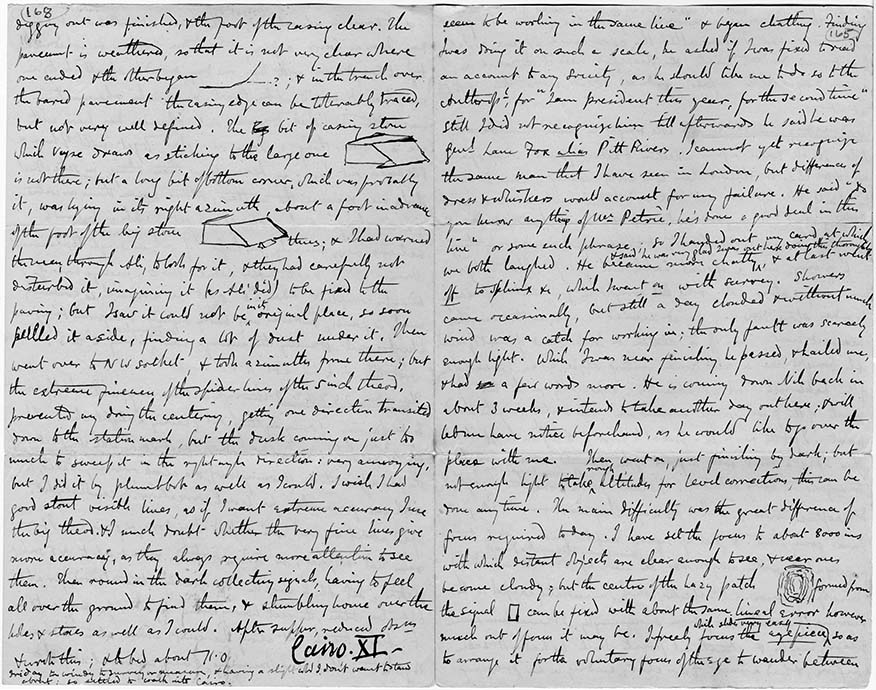 168
digging out was finished, & the foot of the casing clear. The
pavement is weathered, so that it is not very clear where
one ended & the other began ?; & in the trench over
the bared pavement the casing edge can be tolerably traced,
but not very well defined. The bit of casing stone
which Vyse draws as sticking to the large one
is not there; but a long bit of bottom corner, which was probably
it, was lying in its right azimuth, about a foot in advance
of the foot of the big stone thus; & I had warned
the men through Ali, to look for it, & they had carefully not
disturbed it, imagining it (as Ali did) to be fixed to the
paving; but I saw it could not be in its original place, so soon
pulled it aside, finding a lot of dust under it. Then
went over to N W socket, & took azimuths from there; but
the extreme fineness of the spider lines of the 5 inch theod.
prevented my doing the centering, getting one direction transited
down to the station mark, but the dusk coming on just too
much to sweep it in the right angle direction: very annoying,
but I did it by plumb bob as well as I could. I wish I had
good stout visible lines, as if I want extreme accuracy I use
the big theod. & I much doubt whether the very fine lines give
more accuracy, as they always require more attention to see
them. Then round in the dark collecting signals, having to feel
all over the ground to find them, & stumbling home over the
holes & stones as well as I could. After supper, reduced obsns
& wrote this; & to bed about 11.0
Cairo. XI
Friday too windy to survey & having a slight cold I don't want to stand
about; so settled to walk into Cairo.
165
seem to be working in the same line" & began chatting. Finding
I was doing it on such a scale, he asked if I was fixed to read
an account to any Society, as he should like me to do so to the
Anthropl. for "I am president this year, for the second time"
Still I did not recognize him till afterwards he said he was
Genl. Lane Fox alias Pitt Rivers. I cannot yet recognize
the same man that I have seen in London, but difference of
dress & whiskers would account for my failure. He said "do
you know anything of Mr Petrie, he's done a good deal in this
line" or some such phrase; so I handed out my card at which
we both laughed. He became more chatty, & said he was very glad I was out here doing this thoroughly & at last went
off to Sphinx &c, while I went on with survey. Showers
came occasionally, but still a day clouded & without much
wind was a catch for working in; the only fault was scarcely
enough light. While I was near finishing he passed & hailed me,
& had a few words more. He is coming down Nile back in
about 3 weeks, & intends to take another day out here; & will
let me have notice beforehand, as he would like to go over the
place with me. Then went on, just finishing by dark; but
not enough light to take rough altitudes for level corrections, this can be
done any time. The main difficulty was the great difference of
focus required today. I have set the focus to about 8000 ins
with which distant objects are clear enough to see, & near ones
become cloudy; but the centre of the hazy patch formed from
the signal can be fixed with about the same lineal error however
much out of focus it may be. I freely focus the eyepiece, which slides very easily, so as
to arrange it for the voluntary focus of the eye to wander between